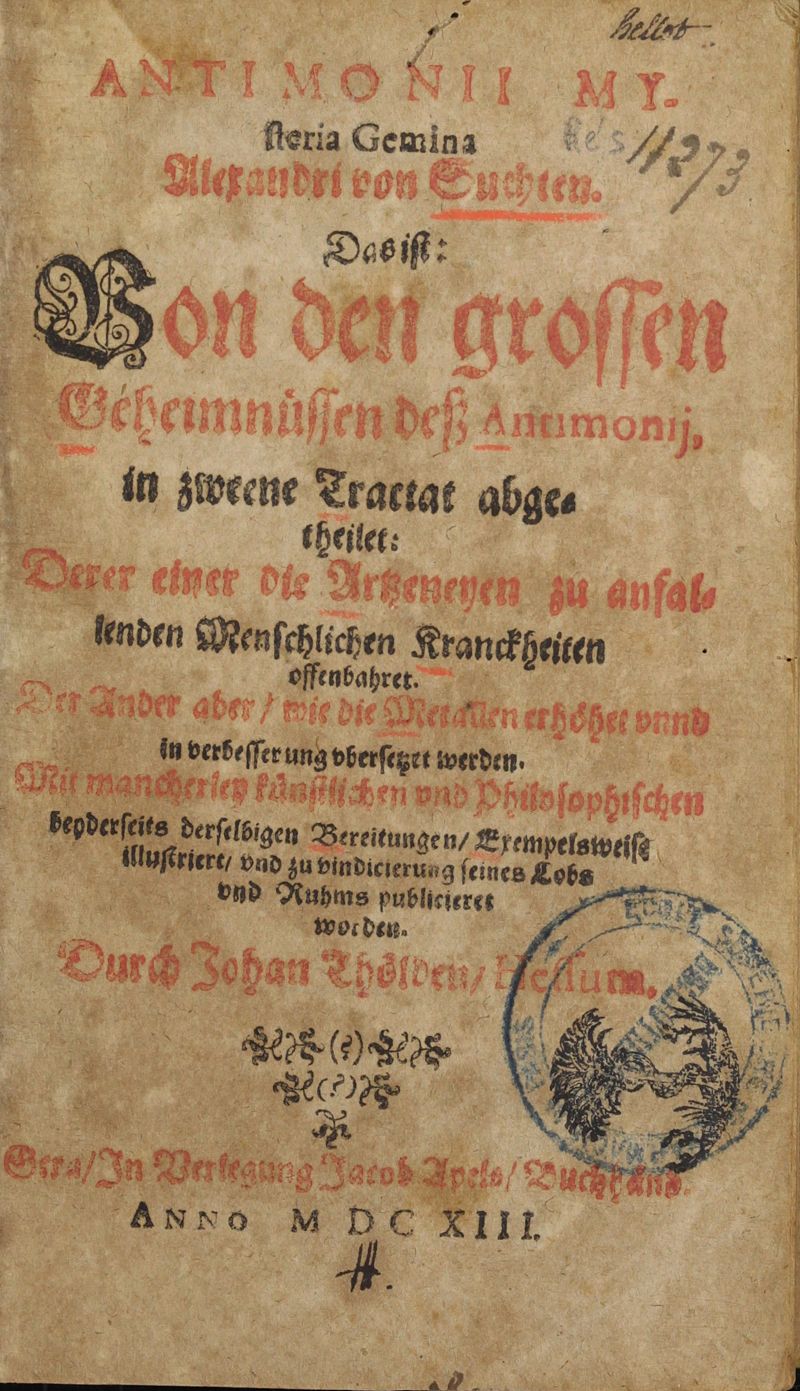 hellot
ANTIMONII MY-
steria Gemina
Alexandri von Suchten.
11273
Das ist:
Von den grossen
Geheimnüssen deß Antimonij,
in zweene Tractat abge-
theilet:
Derer einer die Artzeneyen zu anfal-
lenden Menschlichen Kranckheiten
offenbahret.
Der Ander aber / wie die Metallen erhöhet vnnd
in verbesserung vbersetzet werden.
Mit mancherley künstlichen vnd Philosophischen
beyderseits derselbigen Bereitungen / Exempelsweise
illustriert / vnd zu vindicierung seines Lobs
vnd Ruhms publicieret
worden.
Durch Johan Thölden / Hessum.
(?)
(?)
Gera / In Verlegung Jacob Apels / Buchhänd.
ANNO M DC XIII.